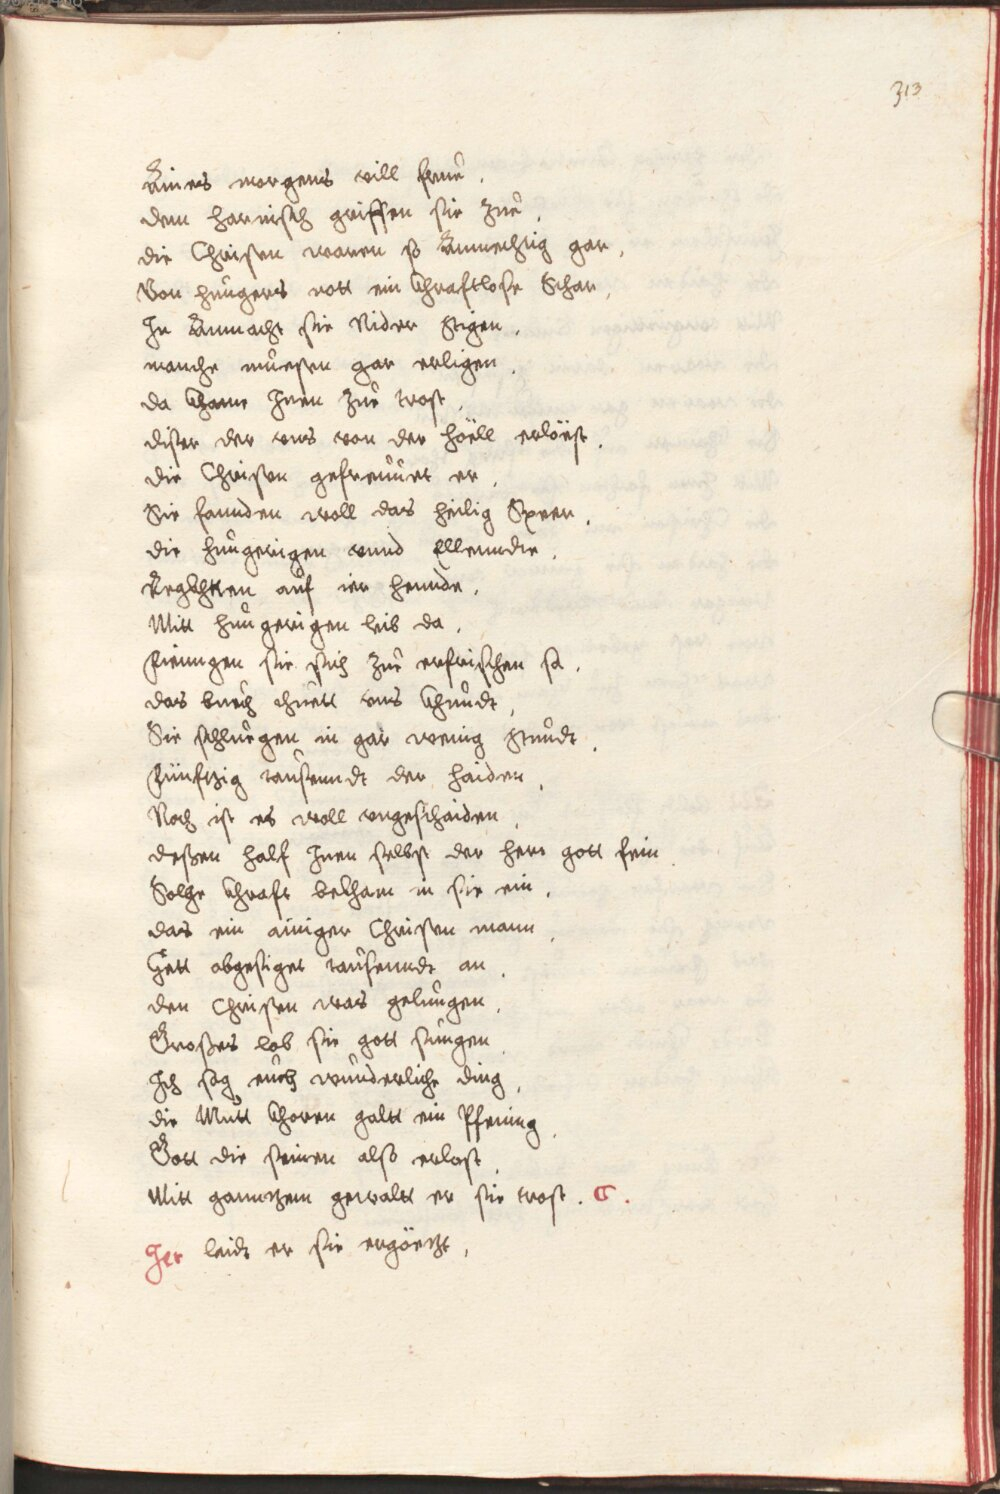 313
Aines morgens vill frue.
dem harnisch griffen sie Zue,
die Christen waren so Ammechtig gar,
Von hungers nott ein Chrafftlose Schar,
In Anmacht sie Nider Stigen,
manche muesten gar erligen,
da Chame Inen Zue trost,
diser der vns von der Höell erlöest.
die Christen gefreuuet er,
Sie fannden woll das heilig Speer,
die hungerigen vnnd Ellenndie.
Reghten auf ier hennde,
Mitt hungerigen leib da,
fienngen sie sich Zue erfrischen sa.
das buech thuett vns Chundt,
Sie schluegen in gar wenig stundt,
fünftzig tausenndt der haiden,
Noch ist es woll vngeschaiden,
deßen half Inen selbst der herr gott fein
Solche Chraft bekham in sie ein,
das ein ainiger Christen mann,
Hett obgesiget tausenndt an,
den Christen was gelungen,
Großes lob sie gott sungen,
Ich sag euch wunderliche ding,
die Mutt Chorren galtt ein Pfening,
Gott die seinen also erlost,
Mitt ganntzem gewaltt er sie trost. C.
Ier leidt er sie ergöezt,